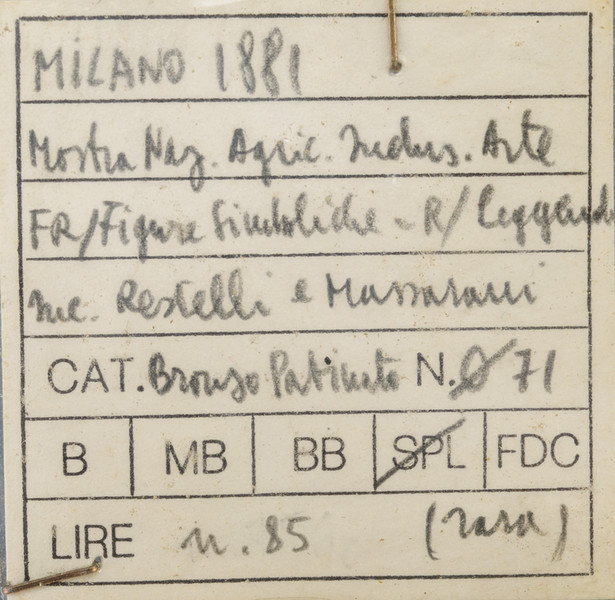 MILANO 1881
Mostra Naz. Agric. Indus. Arte
FR/Figure Simboliche - R/ leggenda
Inc. Restelli e Massarani
CAT. Bronzo Patinato N. Ø 71
B MB BB SPL FDC
LIRE n. 85 (rara)